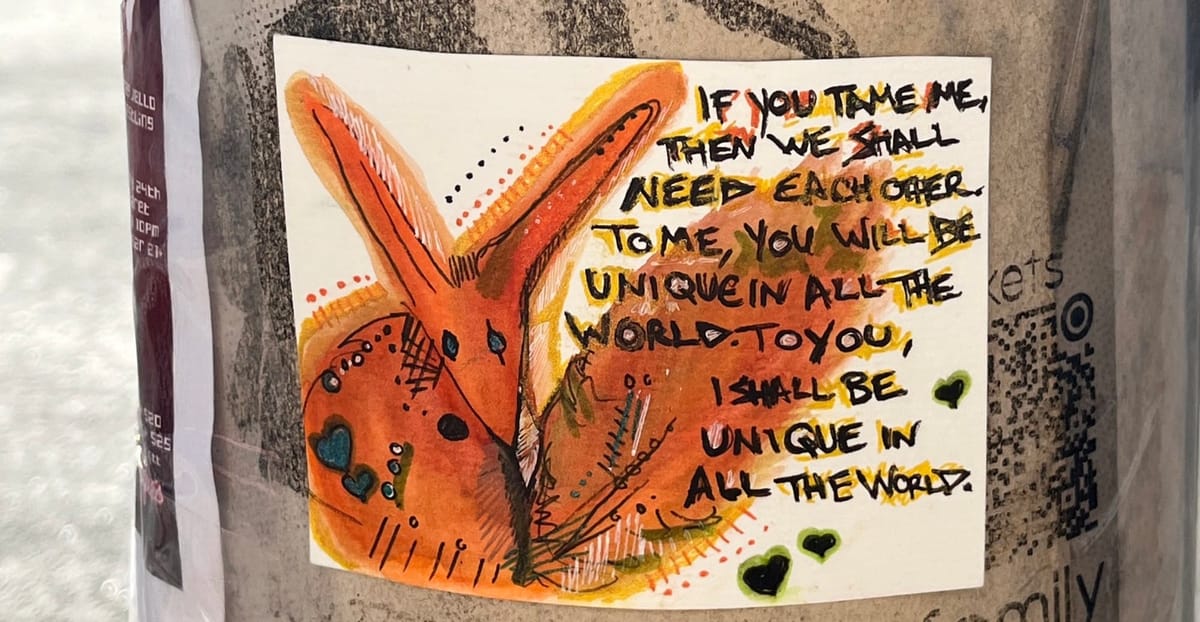 IF YOU TAME ME,
THEN WE SHALL
NEED EACH OTHER.
TO ME, YOU WILL BE
UNIQUE IN ALL THE
WORLD. TO YOU,
I SHALL BE
UNIQUE IN
ALL THE WORLD.
JELLO
24th
10PM
21+
$20
$25
family